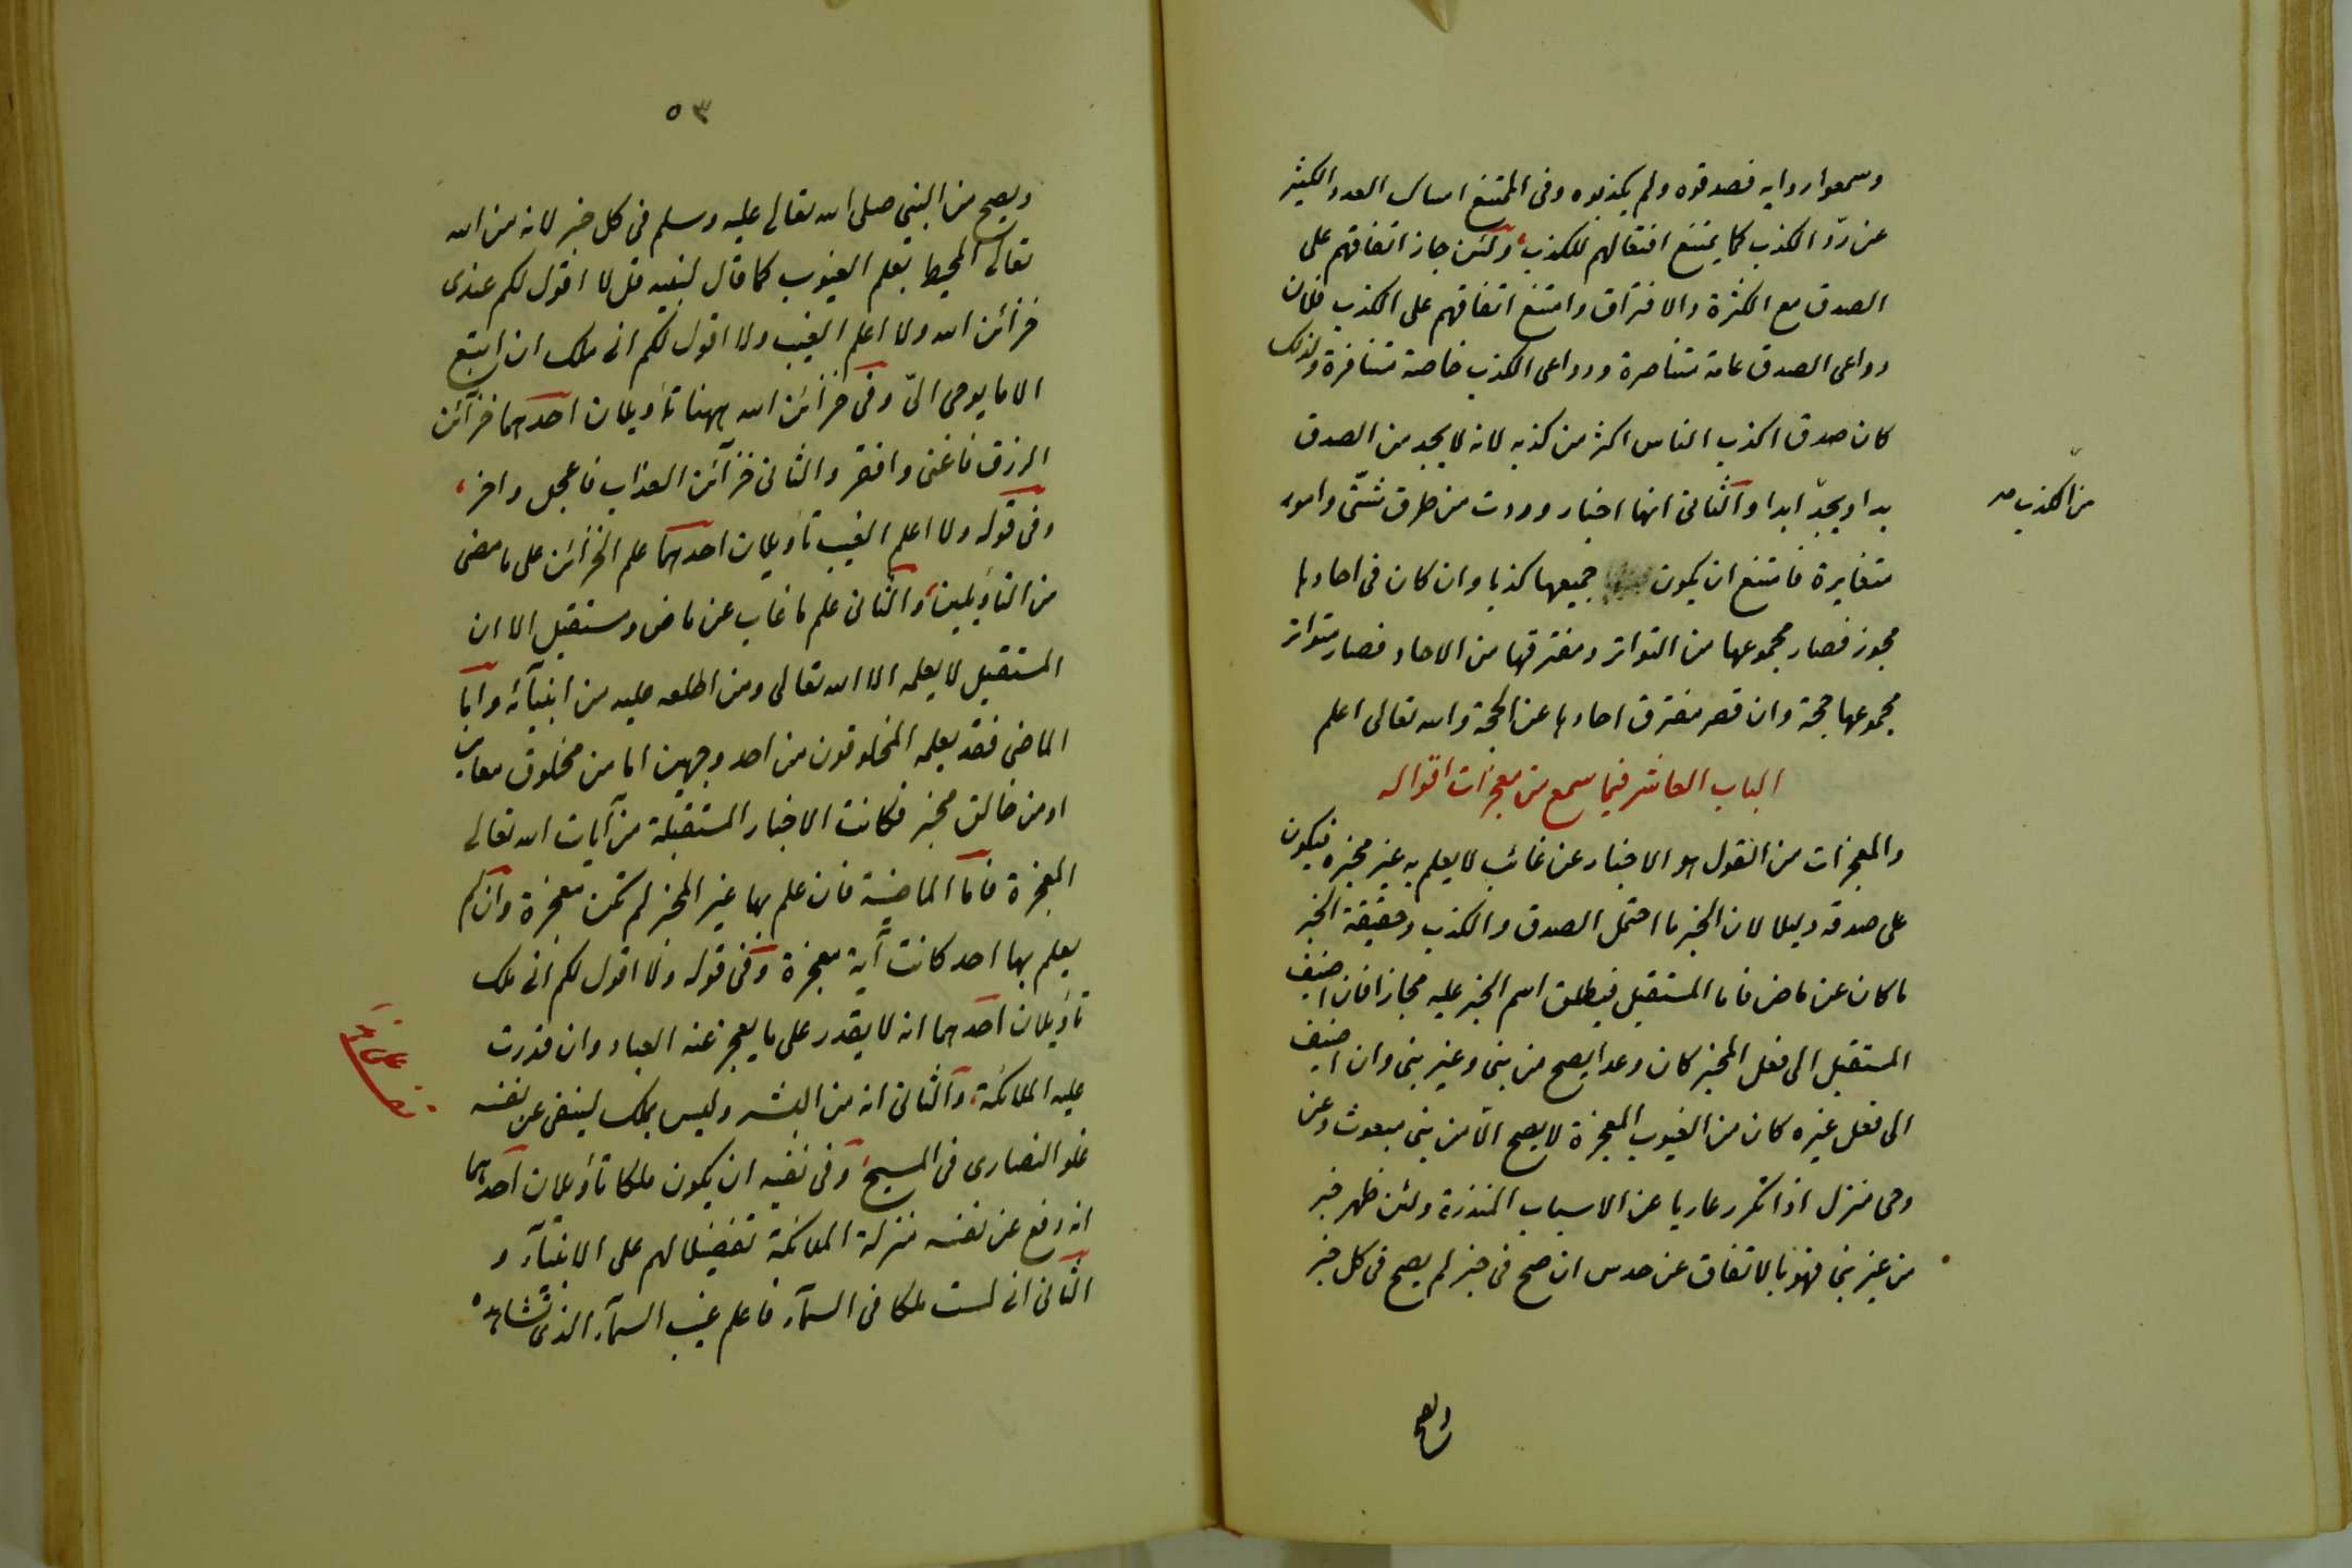 وسمعوا روايه فصدقوه ولم يكذبوه وفى الممتنع امساك العدد الكثير
عن ردّ الكذب كما يمتنع افتعالهم للكذب ولئن جاز اتفاقهم على
الصدق مع الكثرة والافتراق وامتنع اتفاقهم على الكذب فلان
دواعى الصدق عامة متناصرة ودواعى الكذب خاصة متنافرة ولذلك
كان صدق اكذب الناس اكثر من كذبه لانه لا يجد من الصدق
بدا ويجد ابدا والثانى انها اخبار وردت من طرق شتّى وامور
من الكذب صح
متغايرة فامتنع ان يكون جميعها كذبا وان كان فى احادها
مجوز فصار مجموعها من التواتر ومفترقها من الاحاد فصار متواتر
مجموعها حجة وان قصر مفترق احادها عن الحجة والله تعالى اعلم
الباب العاشر فيما سمع من معجزات اقواله
والمعجزات من القول هو الاخبار عن غائب لا يعلم به غير مخبره فيكون
على صدقه دليلا لان الخبر ما احتمل الصدق والكذب وحقيقة الخبر
ما كان عن ماض فاما المستقبل فيطلق اسم الخبر عليه مجازا فان اضيف
المستقبل الى فعل المخبر كان وعدا يصح من نبى وغير نبى وان اضيف
الى فعل غيره كان من الغيوب المعجزة لا يصح الّا من نبى مبعوث وعن
وحى منزل اذا تكرر عاريا عن الاسباب المنذرة ولئن ظهر خبر
من غير نبى فهو بالاتفاق عن حدس ان صح فى خبر لم يصح فى كل خبر
ويصح
٥٣
ويصح من النبى صلى الله تعالى عليه وسلم فى كل خبر لانه من الله
تعالى المحيط بعلم الغيوب كما قال لنبيه قل لا اقول لكم عندى
خزائن الله ولا اعلم الغيب ولا اقول لكم انى ملك ان اتبع
الا ما يوحى الىّ وفى خزائن الله ههنا تأويلان احدهما خزآئن
الرزق فاغنى وافقر والثانى خزآئن العذاب فاعجل واخر
وفى قوله ولا اعلم الغيب تاويلان احدهما علم الخزائن على ما مضى
من التأويلين والثانى علم ما غاب عن ماض ومستقبل الا ان
المستقبل لا يعلمه الا الله تعالى ومن اطلعه عليه من انبيآئه واما
الماضى فقد يعلمه المخلوقون من احد وجهين اما من مخلوق معاين
او من خالق مخبر فكانت الاخبار المستقبلة من آيات الله تعالى
المعجزة فاما الماضية فان علم بها غير المخبر لم تكن معجزة وان لم
يعلم بها احد كانت آية معجزة وفى قوله ولا اقول لكم انى ملك
تأويلان احدهما انه لا يقدر على ما يعجز عنه العباد وان قدرت
عليه الملائكة والثانى انه من البشر وليس بملك لينفى عن نفسه
غلو النصارى فى المسيح وفى نفيه ان يكون ملكا تأويلان احدهما
انه دفع عن نفسه منزلة الملائكة تفضيلا لهم على الانبيآء و
الثانى انى لست ملكا فى السمآء فاعلم غيب السمآء الذى تشاهده